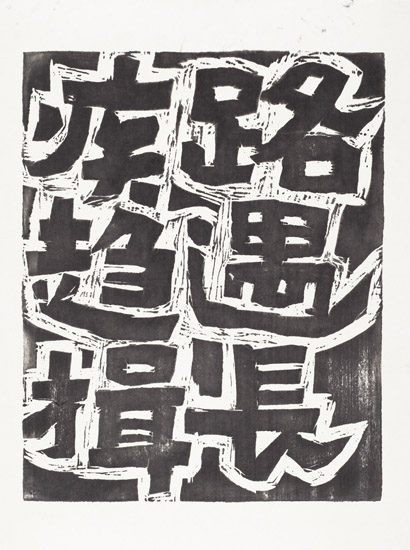 路遇長
疾趋揖